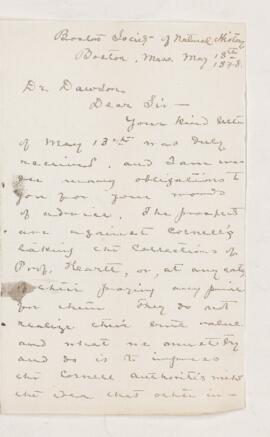 Boston Society of Natural History
Boston, Mass. May 18th
1878.
Dr. Dawson
Dear Sir—
Your kind letter
of May 13th was duly
received, and I am un-
der many obligations to
you for your words
of advice. The prospects
are against Cornell's
taking the collections of
Prof. Hartt, or, at any rate,
of their paying any price
for them. They do not
realize their true value
and what we must try
and do is to impress
the Cornell authorities with
the idea that other in-